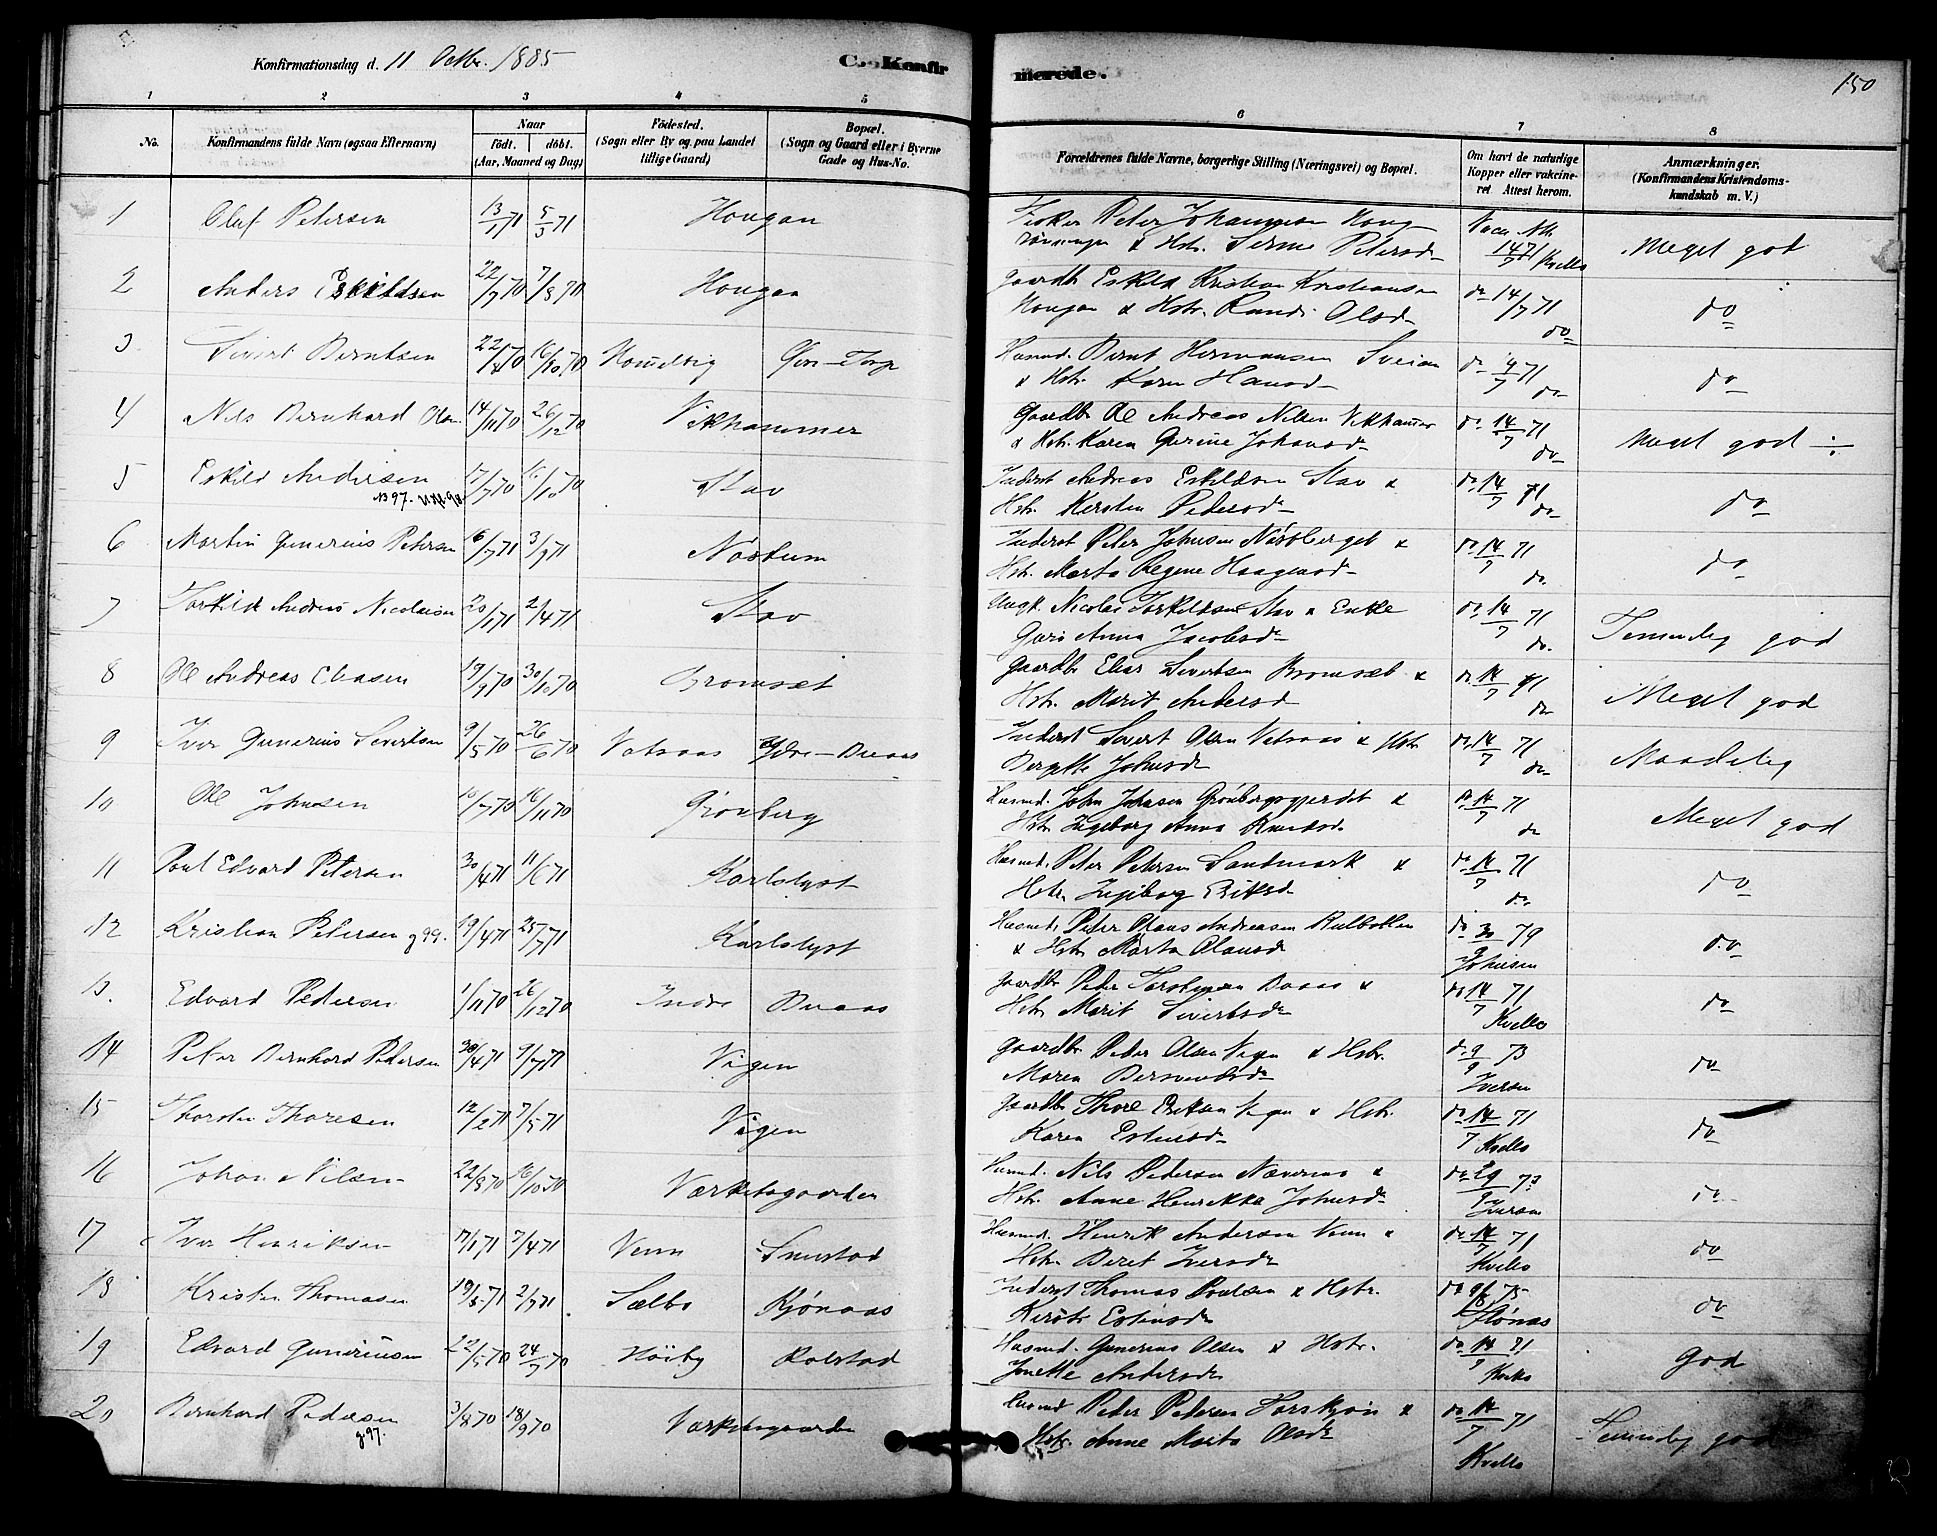 Konfirmationsdag d. 11 Octbr. 1885
C. Konfirmerede.
150
1 2 3 4 5 6 7 8
No.
Konfirmandens fulde Navn (ogsaa Efternavn)
Naar
Födt. döbt.
(Aar, Maaned og Dag)
Födested.
(Sogn eller By og paa Landet
tillige Gaard)
Bopæl.
(Sogn og Gaard eller i Byerne
Gade og Hus-No.
Forældrenes fulde Navne, borgerlige Stilling (Næringsvei) og Bopæl.
Om havt de naturlige
Kopper eller vakcine-
ret Attest herom.
Anmærkninger.
(Konfirmandens Kristendoms-
kundskab m. V.)
1 Oluf Petersen 13/1 71 5/3 71 Hougan Fisker Peter Johannesen Houg
& Hstr. Petersd. 14/7 71 Kvello Meget god
2 Anders Eskildsen 22/7 70 7/8 70 Hougan Gaardbr Eskild Kristian Kristiansen
Hougan & Hstr. Randi Olsd. do 14/7 71 do do
3 Sivert Berntsen 16/10 70 Homelvig Husmd. Bernt Hermansen Sveian
& Hstr. Karen Hansd. do 71 do do
4 Nils Bernhard Olsen 14/11 70 26/12 70 Vikhammer Gaardbr Ole Andreas Nilsen Vikhammer
& Hstr. Karen Gurine Johansd. do 14/7 71 do Meget god ÷
5 Eskild Andersen 17/7 70 16/10 70 Stav Inderst Andreas Eskildsen Stav &
Hstr. Kersten Pedersd. do 14/7 71 do do
6 Martin Gunerius Petersen 16/7 71 3/9 71 Nastum Inderst Peter Johnsen Næssberget &
Hstr. Marta Regine Haagensd. do 14/7 71 do do
7 Torkild Andreas Nicolaisen 20/1 71 2/4 71 Stav Ungk. Nicolai Torkildsen Stav & Enke
Guri Anna Jacobsd. do 14/7 71 do Temmelig god
8 Ole Andreas Eliasen 19/9 70 30/10 70 Bromset Gaardbr Elias Sivertsen Bromset &
Hstr. Marit Andersd. do 14/7 71 do Meget god
9 Iver Gunerius Sivertsen 9/5 70 26/6 70 Vatnaas Ydre-Duaas Inderst Sivert Olsen Vatnaas & Hstr
Bergitte Johnsd. do 14/7 71 do Maadelig
10 Ole Johnsen 10/7 70 16/11 70 Grönberg Husmd. John Johnsen Grönbergsgjerdet &
Hstr Ingeborg Anna Knudsd. do 14/7 71 do Meget god
11 Paul Edvard Petersen 30/4 71 11/6 71 Karlslyst Husmd. Peter Petersen Sandmark &
Hstr. Ingeborg Eriksd. do 14/7 71 do do
12 Kristian Petersen g 99. 19/4 71 23/7 71 Karlslyst Husmd. Peter Olaus Andreasen Kulbotten
& Hstr Marta Olausd. do 30/9 79 Johnsen do
13. Edvard Pedersen 1/11 70 26/12 70 Indre Duaas Gaardbr Peder Torstensen Duaas &
Hstr. Marit Sivertsd. do 14/7 71 Kvello do
14 Peter Bernhard Petersen 30/4 71 9/7 71 Vigen Gaardbr Peder Olsen Vigen & Hstr.
Maren Bersvendsd. do 9/9 73 Iversen do
15 Thorsten Thoresen 12/2 71 7/5 71 Vigen Gaardbr Thore Eriksen Vigen & Hstr.
Karen Estensd. do 14/7 71 Kvello do
16 Johan Nilsen 22/8 70 16/10 70 Værketsgaarden Husmd. Nils Pedersen Næveraas &
Hstr. Anne Henrikka Johnsd. do 29/9 73 Iversen do
17 Iver Henriksen 17/1 71 7/4 71 Venn Smistad Husmd. Henrik Andersen Venn &
Hstr. Beret Iversd. do 14/7 71 Kvello do
18 Kristen Thomasen 19/5 71 2/7 71 Sælbo Kjönaas Inderst Thomas Paulsen & Hstr.
Kerste Estensd. do 9/8 75 Flönas do
19 Edvard Gunerusen 22/5 70 24/7 70 Höiby Rolstad Husmd. Gunerius Olsen & Hstr.
Jonette Andersd. do 14/7 71 Kvello god
20 Bernhard Pedersen g 97. 3/8 70 18/9 70 Værketsgaarden Husmd Peder Petersen Torskjön &
Hstr. Anne Marta Olsd. do 14/7 71 Kvello Temmelig god